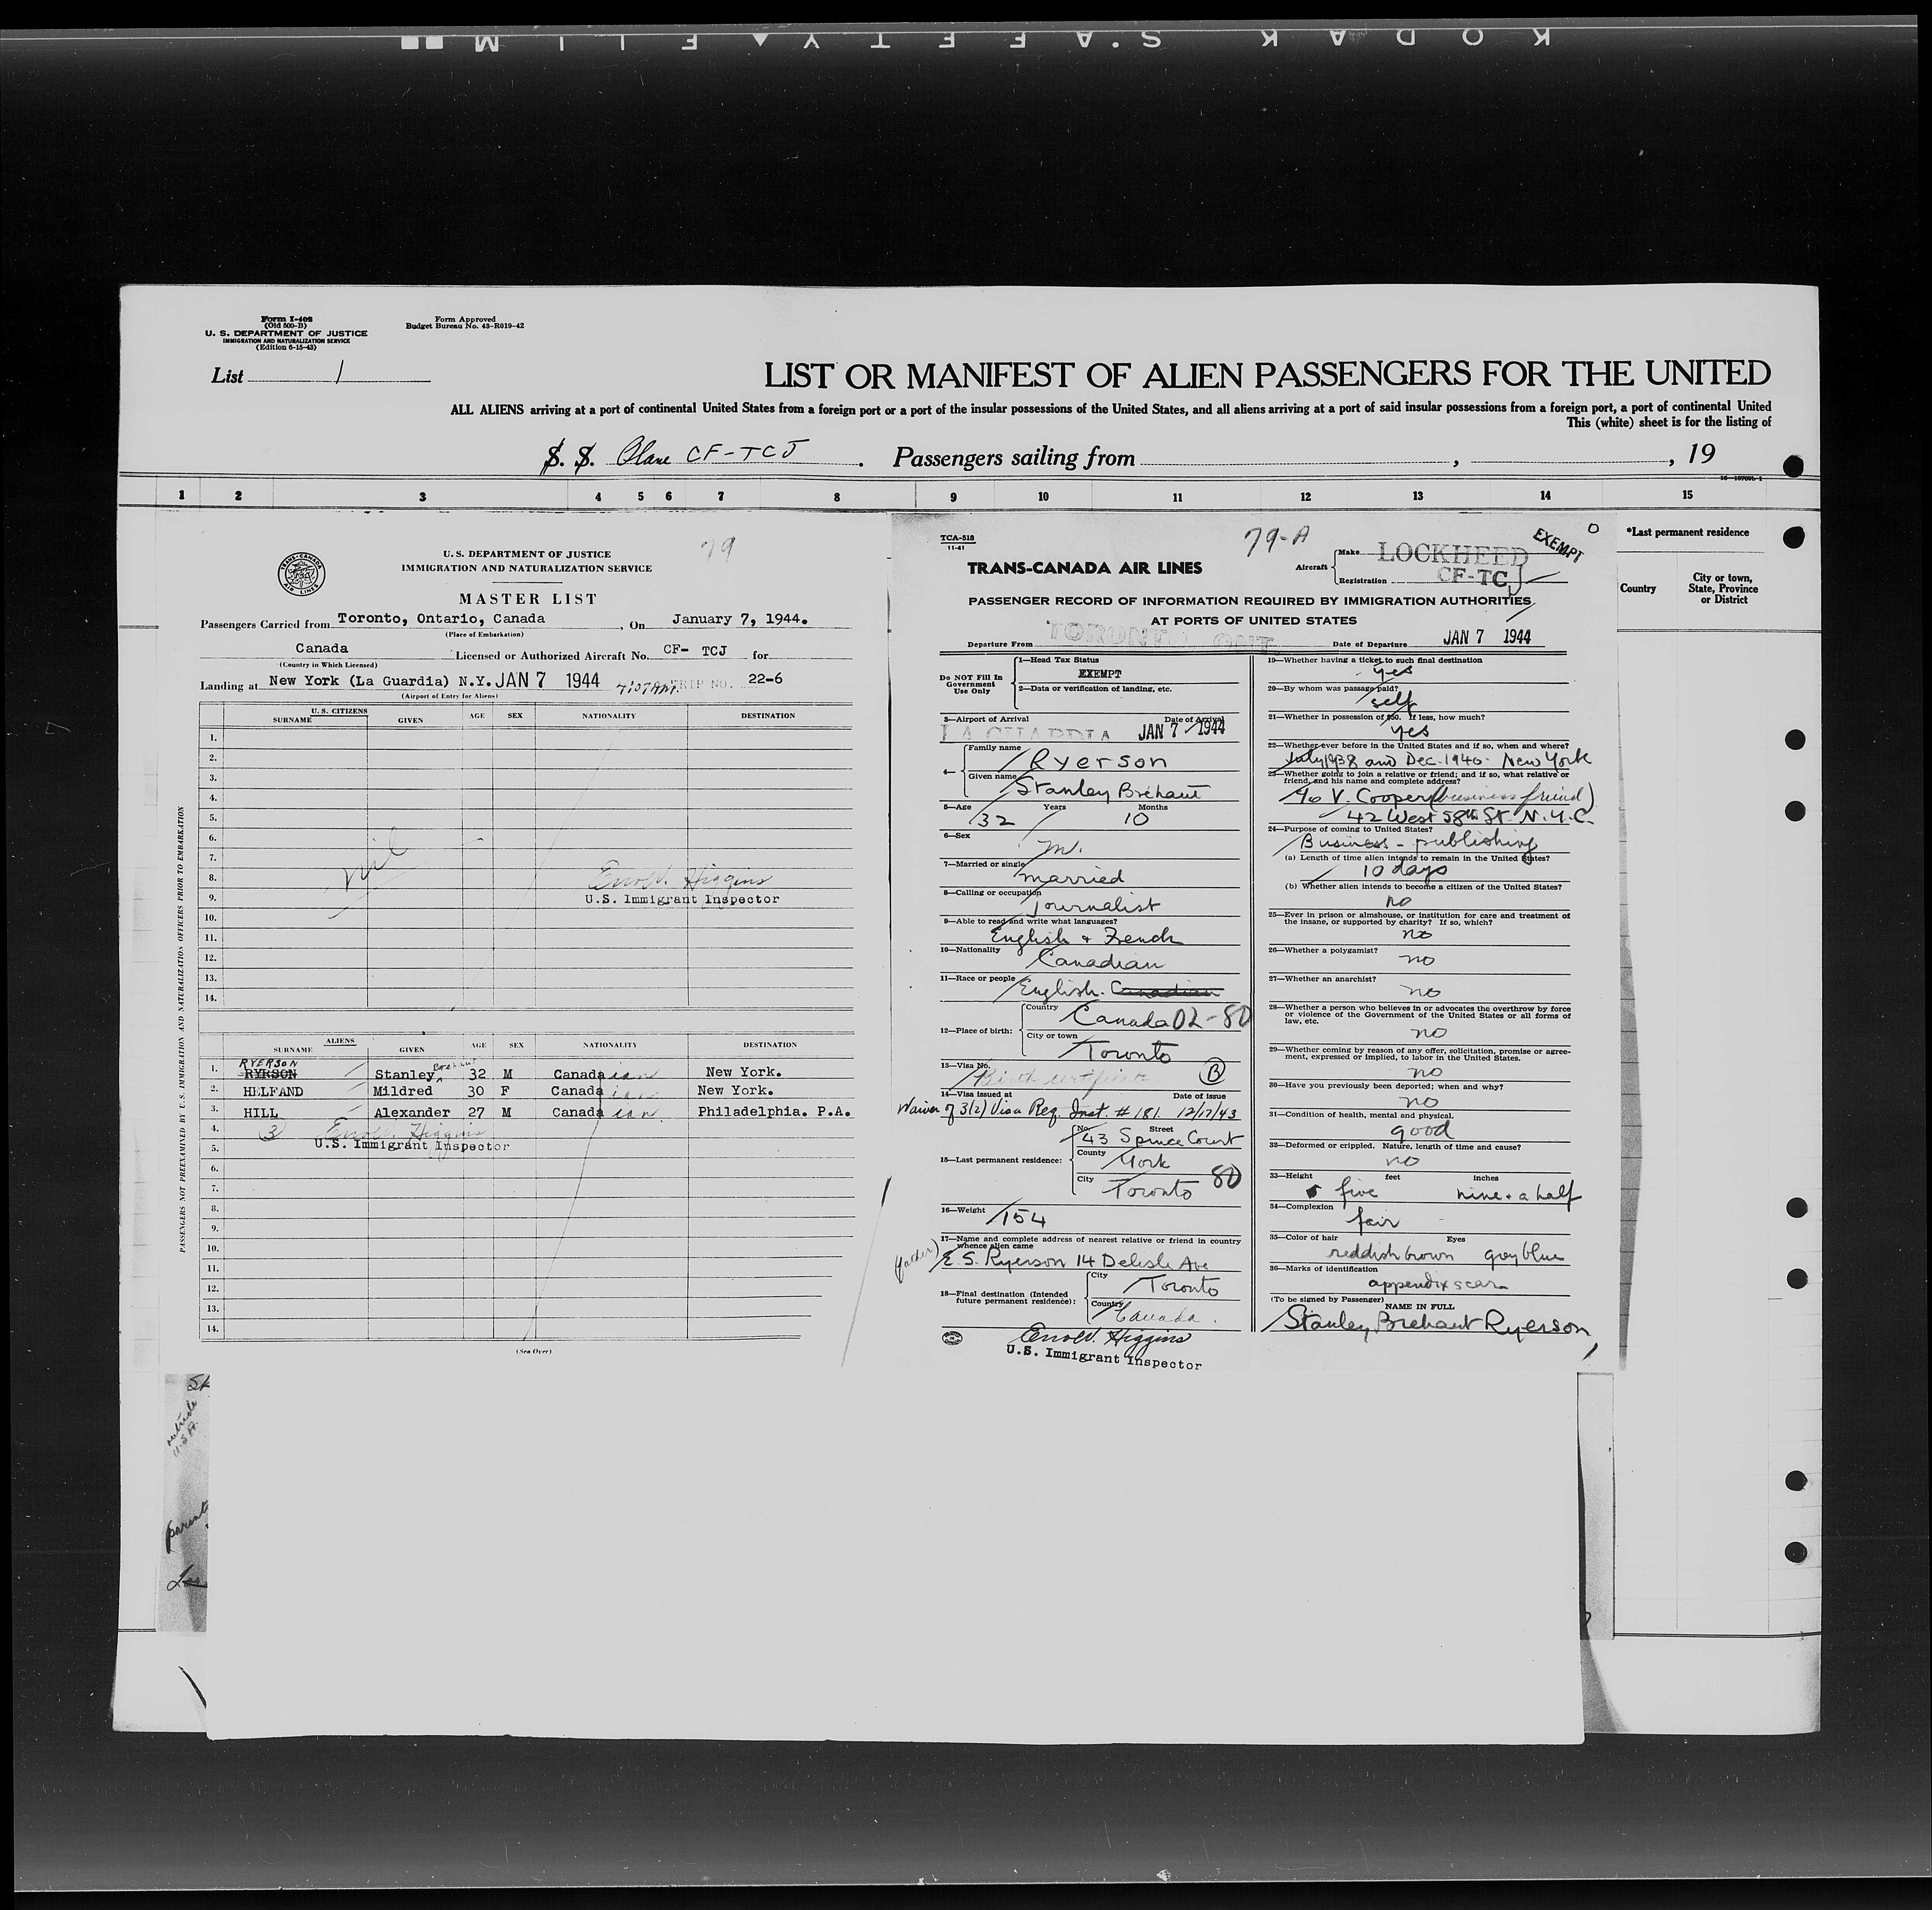 KODAK S.AFETY FILM
Form I-402
(Old 500-B)
U. S. DEPARTMENT OF JUSTICE
IMMIGRATION AND NATURALIZATION SERVICE
(Edition 6-15-43)
Form Approved
Budget Bureau No. 43-R019-42
List 1
LIST OR MANIFEST OF ALIEN PASSENGERS FOR THE UNITED
ALL ALIENS arriving at a port of continental United States from a foreign port or a port of the insular possessions of the United States, and all aliens arriving at a port of said insular possessions from a foreign port, a port of continental United
This (white) sheet is for the listing of
S. S. Plane CF-TCJ . Passengers sailing from , , 19
1 2 3 4 5 6 7 8 9 10 11 12 13 14 15
79
U. S. DEPARTMENT OF JUSTICE
IMMIGRATION AND NATURALIZATION SERVICE
TRANS-CANADA AIR LINES
MASTER LIST
Passengers Carried from Toronto, Ontario, Canada , On January 7, 1944.
(Place of Embarkation)
Canada Licensed or Authorized Aircraft No. CF- TCJ for
(Country in Which Licensed)
Landing at New York (La Guardia) N.Y. JAN 7 1944 TRIP NO. 22-6
(Airport of Entry for Aliens)
U. S. CITIZENS
SURNAME GIVEN AGE SEX NATIONALITY DESTINATION
1.
2.
3.
4.
5.
6.
7.
nil
8. Errol V. Higgins
9. U.S. Immigrant Inspector
10.
11.
12.
13.
14.
PASSENGERS NOT PREEXAMINED BY U.S. IMMIGRATION AND NATURALIZATION OFFICERS PRIOR TO EMBARKATION
ALIENS
SURNAME GIVEN AGE SEX NATIONALITY DESTINATION
RYERSON
1. RYRSON Stanley 32 M Canadaian New York.
2. HELFAND Mildred 30 F Canadaian New York.
3. HILL Alexander 27 M Canadaian Philadelphia. P.A.
4. 3 Errol V. Higgins
5. U.S. Immigrant Inspector
6.
7.
8.
9.
10.
11.
12.
13.
14.
(See Over)
TCA-518
11-41
79-A
EXEMPT
TRANS-CANADA AIR LINES
Aircraft Make LOCKHEED
Registration CF-TCJ
PASSENGER RECORD OF INFORMATION REQUIRED BY IMMIGRATION AUTHORITIES
AT PORTS OF UNITED STATES
Departure From TORONTO ONT. Date of Departure JAN 7 1944
Do NOT Fill In Government Use Only
1—Head Tax Status
EXEMPT
2—Data or verification of landing, etc.
3—Airport of Arrival Date of Arrival
LA GUARDIA JAN 7 1944
4— Family name Ryerson
Given name Stanley Bréhaut
5—Age Years Months
32 10
6—Sex M.
7—Married or single married
8—Calling or occupation journalist
9—Able to read and write what languages?
English + French
10—Nationality Canadian
11—Race or people English. Canadian
12—Place of birth: Country Canada 02-80
City or town Toronto
13—Visa No. Birth certificate B
14—Visa issued at Date of issue
Waiver of 3(2) Visa Req. Inst. # 181. 12/17/43
15—Last permanent residence: No. Street 43 Spruce Court
County York
City Toronto 80
16—Weight 154
17—Name and complete address of nearest relative or friend in country whence alien came
(father) E. S. Ryerson 14 Delisle Ave
18—Final destination (Intended future permanent residence): City Toronto
Country Canada.
Errol V. Higgins
U.S. Immigrant Inspector
19—Whether having a ticket to such final destination
yes
20—By whom was passage paid?
self
21—Whether in possession of $50. If less, how much?
yes
22—Whether ever before in the United States and if so, when and where?
July 1938 and Dec. 1940. New York
23—Whether going to join a relative or friend; and if so, what relative or friend, and his name and complete address?
To V. Cooper (business friend)
42 West 58th St N.Y.C.
24—Purpose of coming to United States?
Business - publishing
(a) Length of time alien intends to remain in the United States?
10 days
(b) Whether alien intends to become a citizen of the United States?
no
25—Ever in prison or almshouse, or institution for care and treatment of the insane, or supported by charity? If so, which?
no
26—Whether a polygamist?
no
27—Whether an anarchist?
no
28—Whether a person who believes in or advocates the overthrow by force or violence of the Government of the United States or all forms of law, etc.
no
29—Whether coming by reason of any offer, solicitation, promise or agreement, expressed or implied, to labor in the United States.
no
30—Have you previously been deported; when and why?
no
31—Condition of health, mental and physical.
good
32—Deformed or crippled. Nature, length of time and cause?
no
33—Height feet inches
five nine + a half
34—Complexion
fair
35—Color of hair Eyes
reddish brown grey blue
36—Marks of identification
appendix scar
(To be signed by Passenger)
NAME IN FULL
Stanley Brehaut Ryerson
*Last permanent residence
Country City or town, State, Province or District
outside
U.S.A.
parent